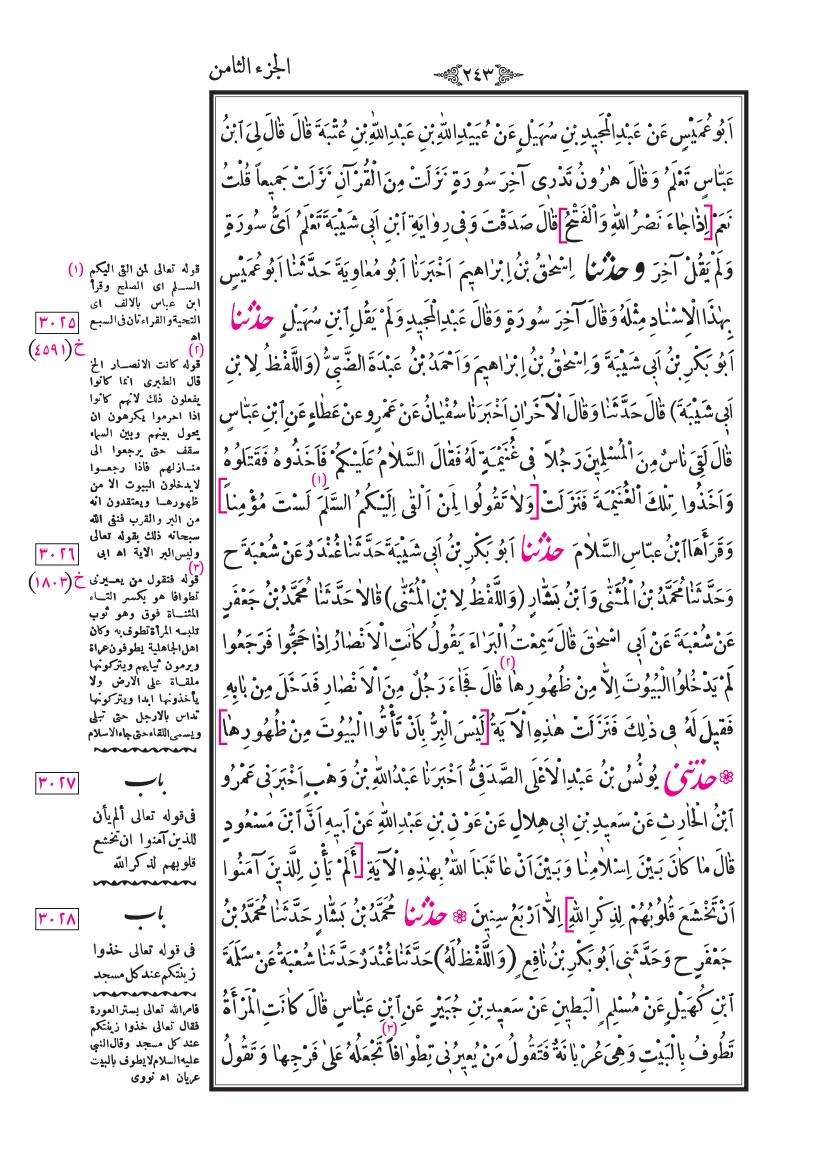 ٢٤٣
الجزء الثامن
اَبُو عُمَيْسٍ عَنْ عَبْدِ الْمَجِيدِ بْنِ سُهَيْلٍ عَنْ عُبَيْدِ اللّٰهِ بْنِ عَبْدِ اللّٰهِ بْنِ عُتْبَةَ قَالَ قَالَ لِى ابْنُ
عَبَّاسٍ تَعْلَمُ وَقَالَ هٰرُونُ تَدْرِى آخِرَ سُورَةٍ نَزَلَتْ مِنَ الْقُرْآنِ نَزَلَتْ جَمِيعاً قُلْتُ
نَعَمْ [اِذَا جَاءَ نَصْرُ اللّٰهِ وَالْفَتْحُ] قَالَ صَدَقْتَ وَفِى رِوَايَةِ ابْنِ اَبِى شَيْبَةَ تَعْلَمُ اَىُّ سُورَةٍ
وَلَمْ يَقُلْ آخِرَ وحدثنا اِسْحٰقُ بْنُ اِبْرَاهِيمَ اَخْبَرَنَا اَبُو مُعَاوِيَةَ حَدَّثَنَا اَبُو عُمَيْسٍ
بِهٰذَا الْاِسْنَادِ مِثْلَهُ وَقَالَ آخِرَ سُورَةٍ وَقَالَ عَبْدِ الْمَجِيدِ وَلَمْ يَقُلِ ابْنِ سُهَيْلٍ حدثنا
اَبُو بَكْرِ بْنُ اَبِى شَيْبَةَ وَاِسْحٰقُ بْنُ اِبْرَاهِيمَ وَاَحْمَدُ بْنُ عَبْدَةَ الضَّبِّىُّ (وَاللَّفْظُ لِابْنِ
اَبِى شَيْبَةَ) قَالَ حَدَّثَنَا وَقَالَ الْآخَرَانِ اَخْبَرَنَا سُفْيَانُ عَنْ عَمْرٍو عَنْ عَطَاءٍ عَنِ ابْنِ عَبَّاسٍ
قَالَ لَقِىَ نَاسٌ مِنَ الْمُسْلِمِينَ رَجُلاً فِى غُنَيْمَةٍ لَهُ فَقَالَ السَّلَامُ عَلَيْكُمْ فَاَخَذُوهُ فَقَتَلُوهُ
وَاَخَذُوا تِلْكَ الْغُنَيْمَةَ فَنَزَلَتْ [وَلَا تَقُولُوا لِمَنْ اَلْقٰى اِلَيْكُمُ السَّلَمَ (١) لَسْتَ مُؤْمِناً]
وَقَرَأَهَا ابْنُ عَبَّاسٍ السَّلَامَ حدثنا اَبُو بَكْرِ بْنُ اَبِى شَيْبَةَ حَدَّثَنَا غُنْدَرٌ عَنْ شُعْبَةَ ح
وَحَدَّثَنَا مُحَمَّدُ بْنُ الْمُثَنّٰى وَابْنُ بَشَّارٍ (وَاللَّفْظُ لِابْنِ الْمُثَنّٰى) قَالَا حَدَّثَنَا مُحَمَّدُ بْنُ جَعْفَرٍ
عَنْ شُعْبَةَ عَنْ اَبِى اِسْحٰقَ قَالَ سَمِعْتُ الْبَرَاءَ يَقُولُ كَانَتِ الْاَنْصَارُ اِذَا حَجُّوا فَرَجَعُوا
لَمْ يَدْخُلُوا الْبُيُوتَ اِلَّا مِنْ ظُهُورِهَا (٢) قَالَ فَجَاءَ رَجُلٌ مِنَ الْاَنْصَارِ فَدَخَلَ مِنْ بَابِهِ
فَقِيلَ لَهُ فِى ذٰلِكَ فَنَزَلَتْ هٰذِهِ الْآيَةُ [لَيْسَ الْبِرُّ بِاَنْ تَأْتُوا الْبُيُوتَ مِنْ ظُهُورِهَا]
حدثنى يُونُسُ بْنُ عَبْدِ الْاَعْلَى الصَّدَفِىُّ اَخْبَرَنَا عَبْدُ اللّٰهِ بْنُ وَهْبٍ اَخْبَرَنِى عَمْرُو
ابْنُ الْحَارِثِ عَنْ سَعِيدِ بْنِ اَبِى هِلَالٍ عَنْ عَوْنِ بْنِ عَبْدِ اللّٰهِ عَنْ اَبِيهِ اَنَّ ابْنَ مَسْعُودٍ
قَالَ مَا كَانَ بَيْنَ اِسْلَامِنَا وَبَيْنَ اَنْ عَاتَبَنَا اللّٰهُ بِهٰذِهِ الْآيَةِ [أَلَمْ يَأْنِ لِلَّذِينَ آمَنُوا
اَنْ تَخْشَعَ قُلُوبُهُمْ لِذِكْرِ اللّٰهِ] اِلَّا اَرْبَعُ سِنِينَ حدثنا مُحَمَّدُ بْنُ بَشَّارٍ حَدَّثَنَا مُحَمَّدُ بْنُ
جَعْفَرٍ ح وَحَدَّثَنِى اَبُو بَكْرِ بْنُ نَافِعٍ (وَاللَّفْظُ لَهُ) حَدَّثَنَا غُنْدَرٌ حَدَّثَنَا شُعْبَةُ عَنْ سَلَمَةَ
ابْنِ كُهَيْلٍ عَنْ مُسْلِمٍ الْبَطِينِ عَنْ سَعِيدِ بْنِ جُبَيْرٍ عَنِ ابْنِ عَبَّاسٍ قَالَ كَانَتِ الْمَرْأَةُ
تَطُوفُ بِالْبَيْتِ وَهِىَ عُرْيَانَةٌ فَتَقُولُ مَنْ يُعِيرُنِى تِطْوَافاً (٣) تَجْعَلُهُ عَلٰى فَرْجِهَا وَتَقُولُ
(١) قوله تعالى لمن القى اليكم
السلم اى الصلح وقرأ
ابن عباس بالالف اى
التحية والقراءتان فى السبع
اه
٣٠٢٥
خ (٤٥٩١)
(٢)
قوله كانت الانصار الخ
قال الطبرى انما كانوا
يفعلون ذلك لانهم كانوا
اذا احرموا يكرهون ان
يحول بينهم وبين السماء
سقف حتى يرجعوا الى
منازلهم فاذا رجعوا
لايدخلون البيوت الا من
ظهورها ويعتقدون انه
من البر والقرب فنفى الله
سبحانه ذلك بقوله تعالى
وليس البر الاية اه ابى
٣٠٢٦
خ (١٨٠٣)
(٣)
قوله فتقول من يعيرنى
تطوافا هو بكسر التاء
المثناة فوق وهو ثوب
تلبسه المرأة تطوف به وكان
اهل الجاهلية يطوفون عراة
ويرمون ثيابهم ويتركونها
ملقاة على الارض ولا
يأخذونها ابدا ويتركونها
تداس بالارجل حتى تبلى
ويسمى اللقاء حتى جاء الاسلام
باب
٣٠٢٧
فى قوله تعالى ألم يأن
للذين آمنوا ان تخشع
قلوبهم لذكر الله
باب
٣٠٢٨
فى قوله تعالى خذوا
زينتكم عند كل مسجد
فامر الله تعالى بستر العورة
فقال تعالى خذوا زينتكم
عند كل مسجد وقال النبى
عليه السلام لا يطوف بالبيت
عريان اه نووى